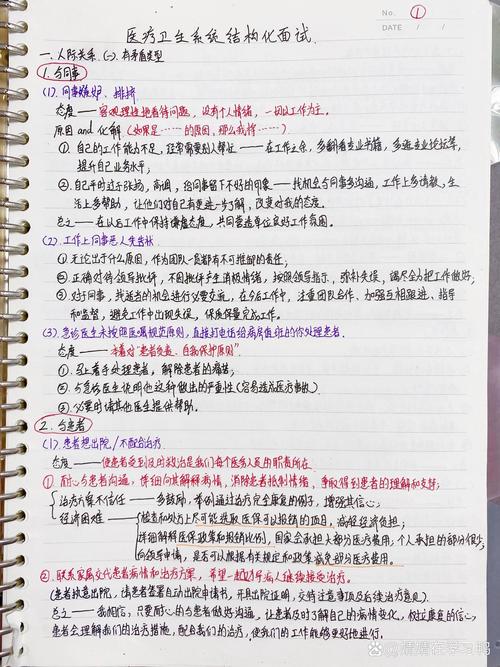 No. ①
DATE / /
医疗卫生系统结构化面试.
一. 人际关系. (一). 有矛盾类型
1. 与同事
(1). 同事嫉妒、排挤
态度 —— 客观理性地看待问题, 没有个人情绪, 一切以工作为主.
原因 and 化解 (如果是……的原因, 那么我将……)
① 自己的工作能力不足, 经常需要别人帮忙 —— 在工作之余, 多翻看专业书籍, 多逛专业论坛等,
提升自己业务水平;
② 自己平时过于张扬, 高调, 给同事留下不好的印象 —— 找机会与同事多沟通, 工作上多请教, 生
活上多帮助, 让他们对自己有更进一步了解, 改变对我的态度.
总之 —— 在以后工作中保持谦虚态度, 共同营造单位良好工作氛围.
(2) 工作上同事无人
① 无论出于什么原因, 作为团队一员都有不可推卸的责任;
② 正确对待领导批评, 不因批评产生消极情绪, 按照领导指示, 弥补失误, 竭尽全力把工作做好;
③ 对于同事, 找适当的机会进行必要交流, 在今后工作中, 注重团队合作、加强互相跟进、指导
和监督, 避免工作中出现失误, 保质保量完成工作.
(3) 急诊医生未按照医嘱规范原则, 直接打电话给病房值班的你处理患者.
态度 —— 本着对"患者负责、自我保护原则".
① 马上着手处理患者, 解除患者的痛苦;
② 与急诊医生说明他这种做出的严重性 (容易造成医疗事故)
③ 必要时请其他医生提供帮助.
2. 与患者
(1) 患者想出院 / 不配合治疗
态度 —— 使患者受到及时救治是我们每个医务人员的职责所在
① 耐心与患者沟通, 详细向其解释病情, 消除患者抵制情绪, 争取得到患者的理解和支持;
治疗方案不信任 —— 多鼓励, 举例通过治疗完全康复的例子, 增强其信心;
经济困难 —— 检查和处方上尽可能选取医保可以报销的项目, 减轻经济负担;
详细解释医保政策和报销比例, 国家会承担大部分医疗费用, 个人承担的部分很少;
向领导申请, 是否可以根据有关规定和政策减免部分医疗费用.
② 联系家属交代患者病情和治疗方案, 希望一起劝导病人继续接受治疗.
(患者执意出院, 请患者签署自动出院申请书, 开具出院证明, 交待注意事项及后续治疗意见).
总之 —— 我相信, 只要耐心的与患者做好沟通, 让患者及时了解自己的病情变化, 树立康复的信心,
患者会理解我们的治疗措施, 配合我们的治疗, 使我们的工作能够更好地进行.